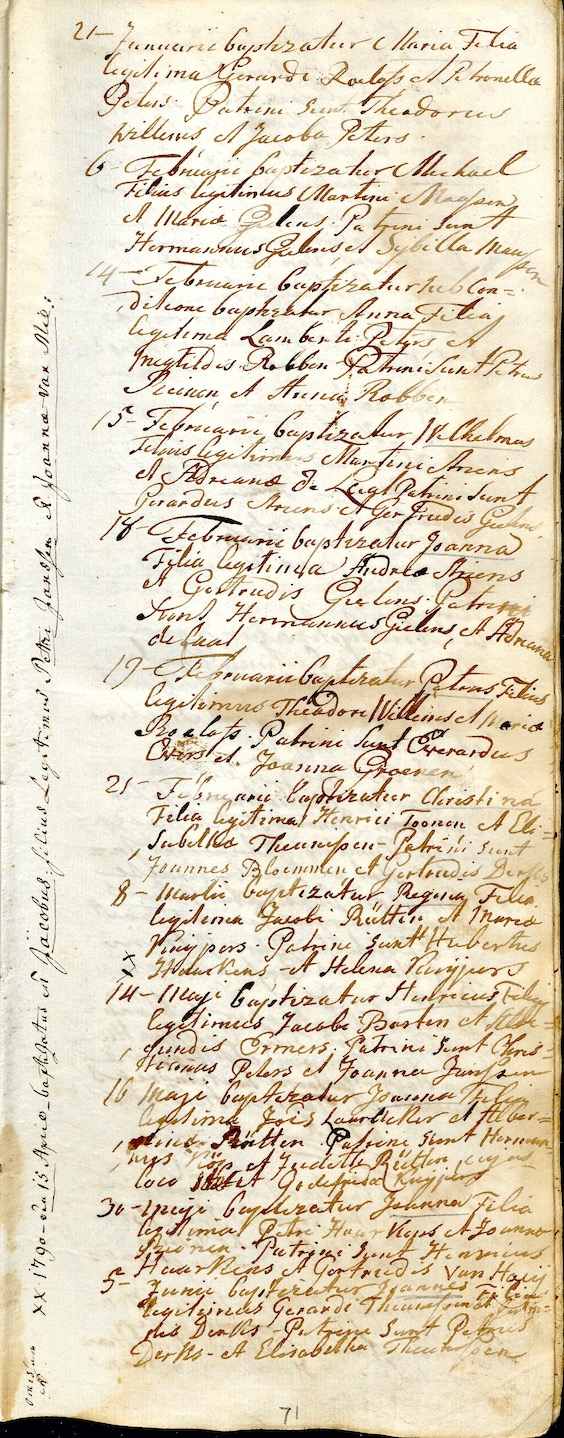 21- Januarii baptizatur Maria Filia
legitima Gerardi Roelofs et Petronella
Peters. Patrini sunt Theodorus
Willems et Jacoba Peters.
6- Februarii baptizatur Michael
Filius legitimus Martini
et Maria Gielens. Patrini sunt
Hermannus Gielens et Sybilla
14- Februarii baptizatur sub con=
ditione baptizatur Anna Filia
legitima Lamberti Peters et
Megtildis Robben Patrini sunt Petrus
et Anna Robben
15- Februarii baptizatur Wilhelmus
Filius legitimus Martini Ariens
et Adriana de Patrini sunt
Gerardus Ariens et Gertrudis Gielens
18- Februarii baptizatur Joanna
Filia legitima Andrea Ariens
et Gertrudis Gielens. Patrini
sunt Hermannus Gielens, et Adriana
de
19- Februarii baptizatur Petrus Filius
legitimus Theodori Willems et Maria
Roelofs. Patrini sunt Everardus
Evers et Joanna Groenen
25- Februarii baptizatur Christina
Filia legitima Henrici Toonen et Eli-
sabetha Theunissen- Patrini sunt
Joannes Bloemmen et Gertrudis Derks
8- Martii baptizatur Regina Filia
legitima Jacobi Rütten et Maria
Kuijpers. Patrini sunt Hubertus
Haackens et Helena Kuijpers
XX
14- Maji baptizatur Henricus Filius
legitimus Jacobi Barten et
Patrini sunt Chris=
Peters et Joanna Janssen
16 Maji baptizatur Joanna Filia
legitima Jois et Alber=
tina Rütten Patrini sunt Herman=
nus et Judith Rütten cujus
loco Godefrida Kuijpers
30- Maji baptizatur Joanna Filia
legitima Petri Haarkens et Joanna
Patrini sunt Henricus
Haarkens et Gertrudis Van Haeij
5- Junii baptizatur Joannes
legitimus Gerardi Theunissen et
dis Derks- Patrini sunt Petrus
Derks- et Elisabetha Theunissen
XX 1790- den 15 April- baptizatus est Jacobus. filius Legitimus Petri Janssen et Joanna Van Mil:
71